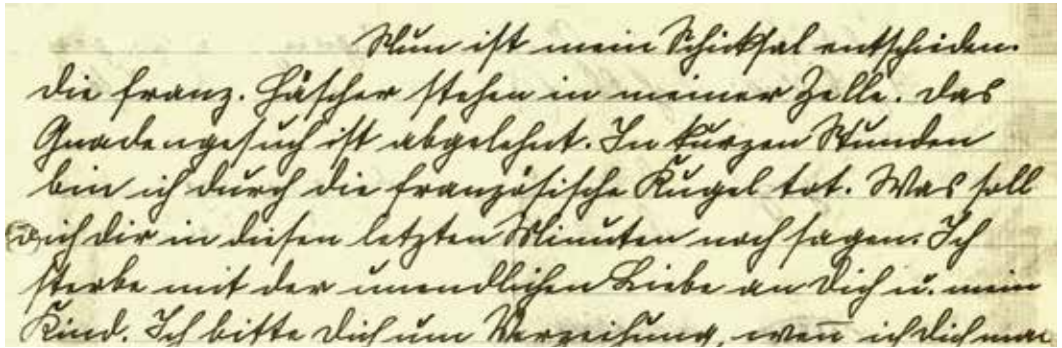 Nun ist mein Schicksal entschieden.
Die franz. Häscher stehen in meiner Zelle. Das
Gnadengesuch ist abgelehnt. In kurzen Stunden
bin ich durch die französische Kugel tot. Was soll
ich dir in diesen letzten Minuten noch sagen. Ich
sterbe mit der unendlichen Liebe an Dich u. mein
Kind. Ich bitte Dich um Verzeihung, wen̄ ich Dich